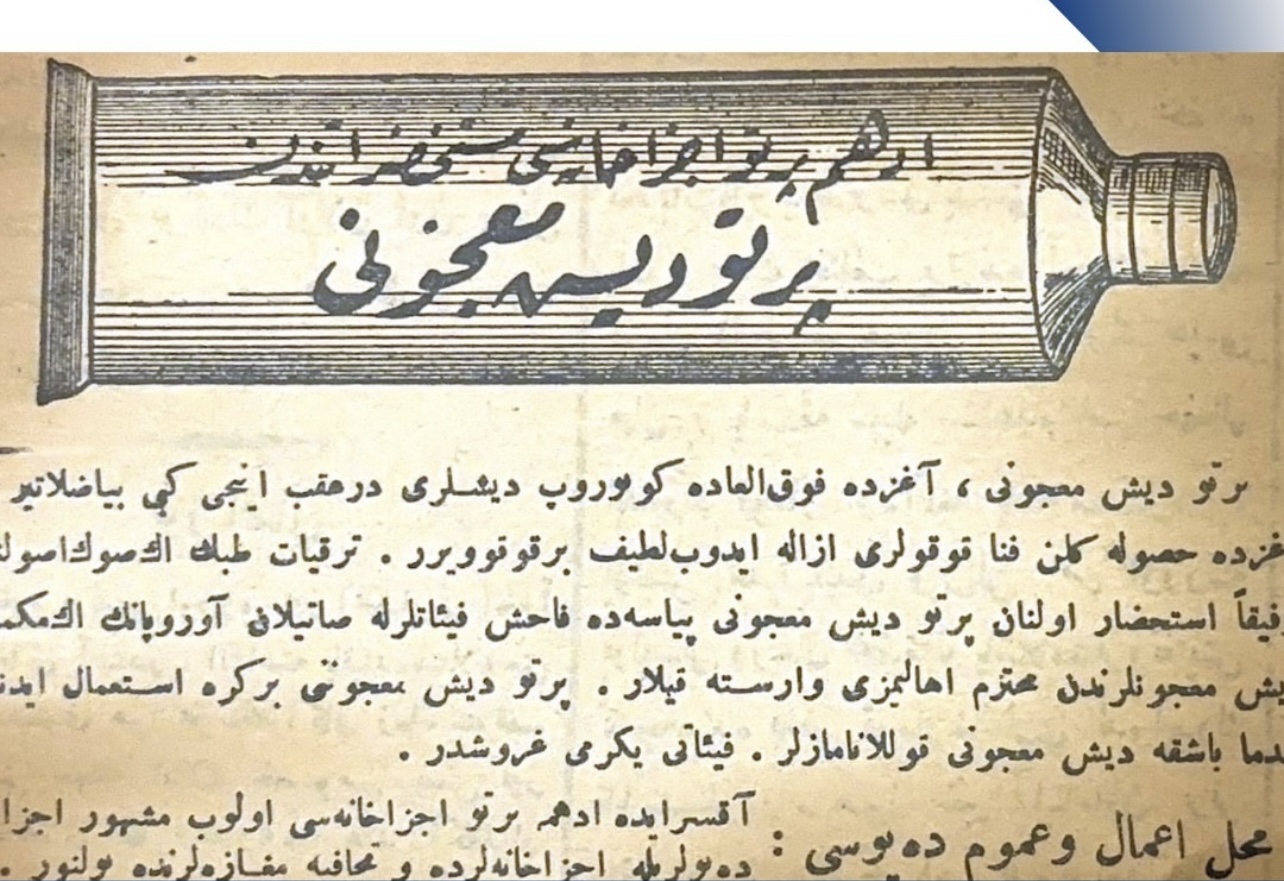 ادهم پرتو اجزاخانه‌سی مستحضراتندن
پرتو ديش معجونی
پرتو ديش معجونی ، آغزده فوق‌العاده كوپوروپ ديشلری درعقب اينجی كبی بياضلاتير
غزده حصوله كلن فنا قوقولری ازاله ايدوب لطيف برقوقوويرر . ترقيات طبك اك‌صوك‌اصول
فيقاً استحضار اولنان پرتو ديش معجونی پياسه‌ده فاحش فيئاتلرله صاتيلان آوروپانك اك‌مكم
يش معجونلرندن محترم اهاليمزی وارسته قيلار . پرتو ديش معجونی بركره استعمال ايدن
دما باشقه ديش معجونی قوللانامازلر . فيئاتی يكرمی غروشدر .
محل اعمال وعموم ده‌پوسی :
آقسرايده ادهم پرتو اجزاخانه‌سی اولوب مشهور اجزا
ده‌پولريله اجزاخانه‌لرده و تحافيه مغازه‌لرنده بولنور .